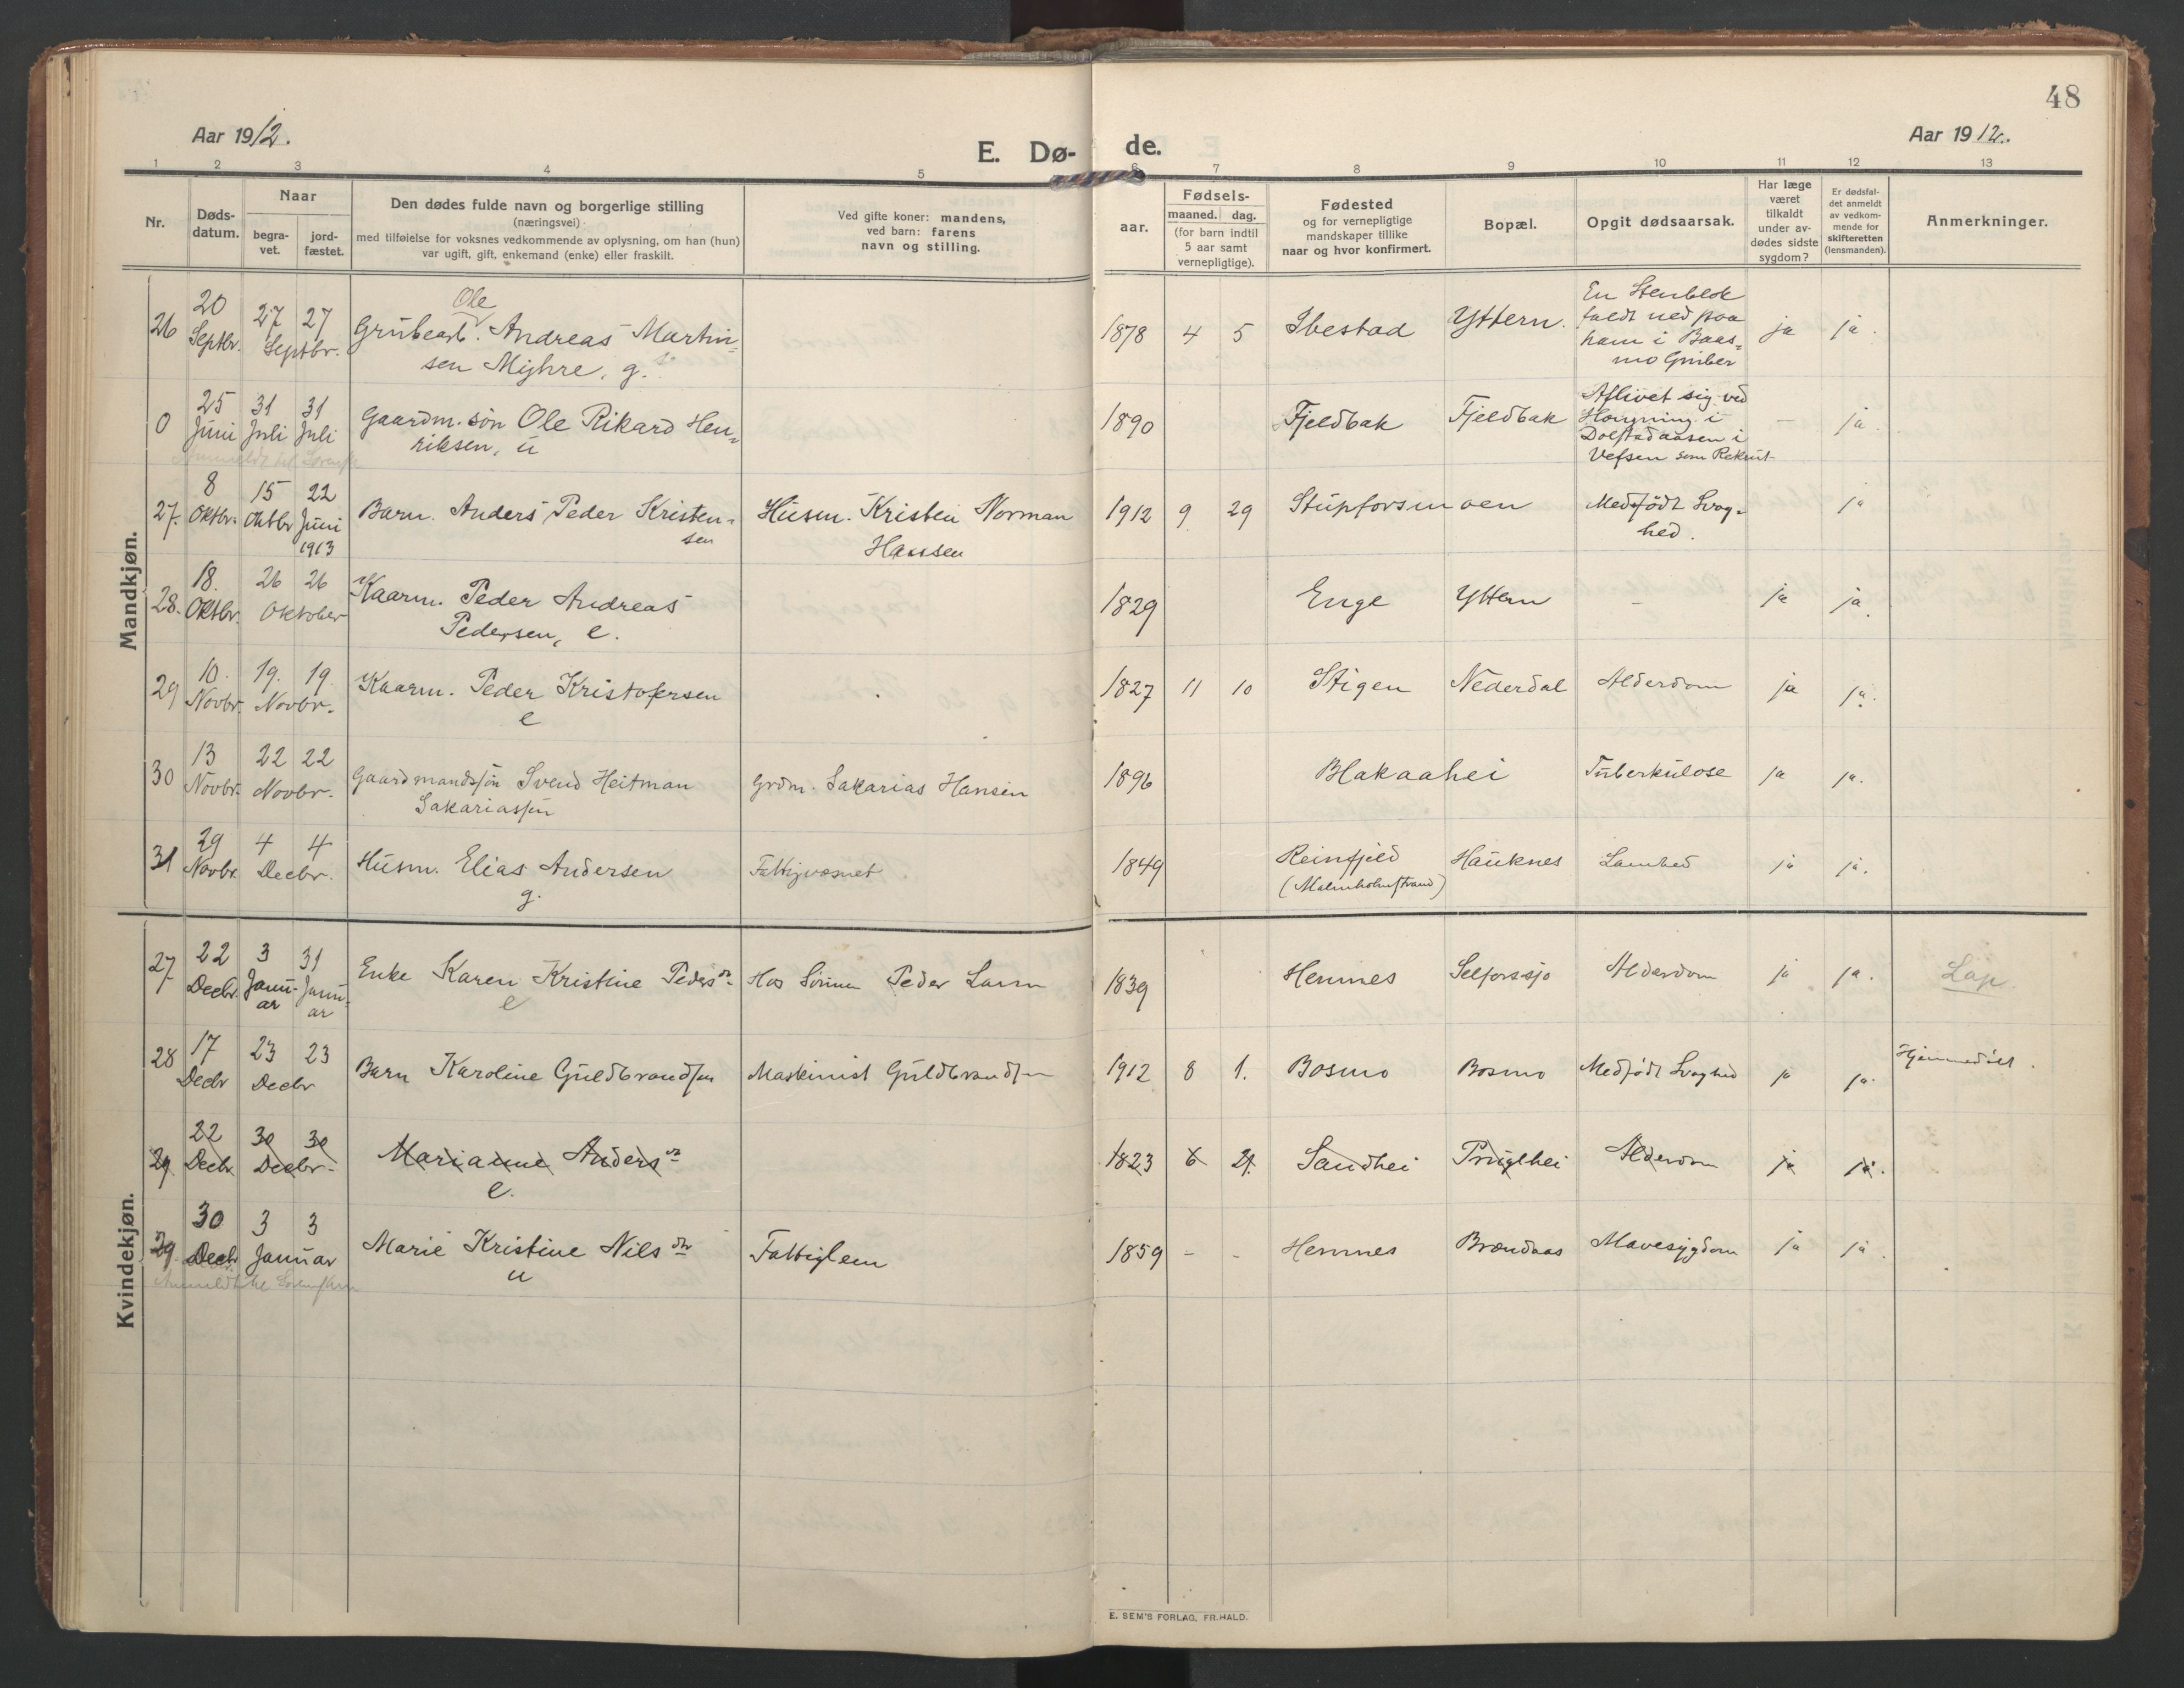 48
Aar 1912.
E. Dø-
de.
Aar 1912.
1 2 3 4 5 6 7 8 9 10 11 12 13
Nr.
Døds-
datum.
Naar
begra-
vet.
jord-
fæstet.
Den dødes fulde navn og borgerlige stilling
(næringsvei)
med tilføielse for voksnes vedkommende av oplysning, om han (hun)
var ugift, gift, enkemand (enke) eller fraskilt.
Ved gifte koner: mandens,
ved barn: farens
navn og stilling.
aar.
Fødsels-
maaned. dag.
(for barn indtil
5 aar samt
vernepligtige).
Fødested
og for vernepligtige
mandskaper tillike
naar og hvor konfirmert.
Bopæl.
Opgit dødsaarsak.
Har læge
været
tilkaldt
under av-
dødes sidste
sygdom?
Er dødsfal-
det anmeldt
av vedkom-
mende for
skifteretten
(lensmanden).
Anmerkninger.
Mandkjøn.
26 20 Septbr. 27 27 Septbr.
Ole
Grubearb. Andreas Martin-
sen Mijhre, g.
1878 4 5 Ibestad Yttern.
En Stenblok
faldt ned paa
ham i Baas-
mo Gruber
ja ja.
0 25 Juni 31 Juli 31 Juli
Gaardm. søn Ole Rikard Hen-
riksen, u
1890 Fjeldbak Fjeldbak
Aflivet sig ved
Hængning i
Dolstadaasen i
Vefsen som Rekrut
- ja.
27. 8 Oktbr. 15 Oktbr 22 Juni 1913
Barn. Anders Peder Kristen-
sen
Husm. Kristen Norman
Hansen
1912 9 29 Stupforsmoen
Medfødt Svag-
hed.
ja
28. 18. Oktbr. 26 26 Oktober
Kaarm. Peder Andreas
Pedersen, e.
1829 Enge Yttern - ja ja.
29 10. Novbr. 19. 19. Novbr.
Kaarm. Peder Kristofersen
e
1827 11 10 Stigen Nederdal Alderdom ja ja.
30 13 Novbr. 22 22 Novbr.
Gaardmandssøn Svend Heitman
Sakariassen
Grdm. Sakarias Hansen
1896 Blakaahei Tuberkulose ja ja.
31 29 Novbr. 4 4 Decbr.
Husm. Elias Andersen
g.
Fattigvæsnet
1849 Reinfjeld
(Malmholmstrand)
Hauknes Lamhed ja ja.
Kvindekjøn.
27 22 Decbr. 3 Janu-
ar 31 Janu-
ar
Enke Karen Kristine Pedersdr
e
Hos Sønnen Peder Larsen
1839 Hemnes Selforssjø Alderdom ja ja. Lap.
28 17 Decbr 23 23 Decbr
Barn Karoline Guldbrandsen
Maskinist Guldbrandsen
1912 8 1. Bosmo Bosmo Medfødt Svaghed ja ja. Hjemmedøbt.
29 22 Decbr 30 30 Decbr.
Marianne Andersdr
e.
1823 6 21. Sandhei Pruglhei Alderdom ja ja.
29. 30 Decbr 3 3 Januar
Marie Kristine Nilsdtr
u
Fattiglem
1859 - - Hemnes Brændaas Mavesygdom ja ja.
E. SEM'S FORLAG, FR.HALD.